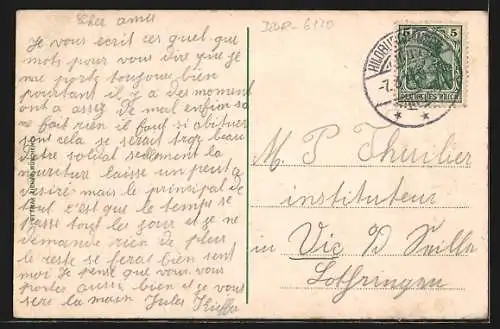 Cher ami
Je vous écrit ces quel que
mots pour vous dire que je
me porte toujours bien
pourtant il y à des moment
ont a assez de mal enfin sa
fait rien il fauf si abituer
sont cela se serait trop beau
être soldat seulement la
nourriture laisse un peut a
désiré mais le principal de
tout c'est que le temps se
passe tout les jours et je ne
demande rien de plus
le reste se feras bien sent
moi Je pense que vous vous
portez aussi bien et je vous
sere la main Jules
6110
HILDBURGHAUSEN
5 5
DEUTSCHES REICH
M. P Thuilier
instituteur
in Vic s/ Seille
Lothringen